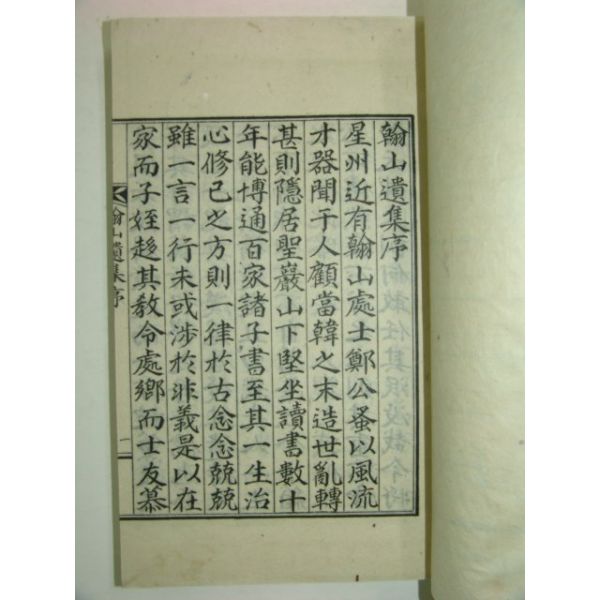 翰山遺集序
星州近有翰山處士鄭公蚤以風流
才器聞于人顧當韓之末造世亂轉
甚則隱居聖巖山下堅坐讀書數十
年能博通百家諸子書至其一生治
心修己之方則一律於古念念兢兢
雖一言一行未或涉於非義是以在
家而子姪趍其敎令處鄉而士友慕
翰山遺集序
一